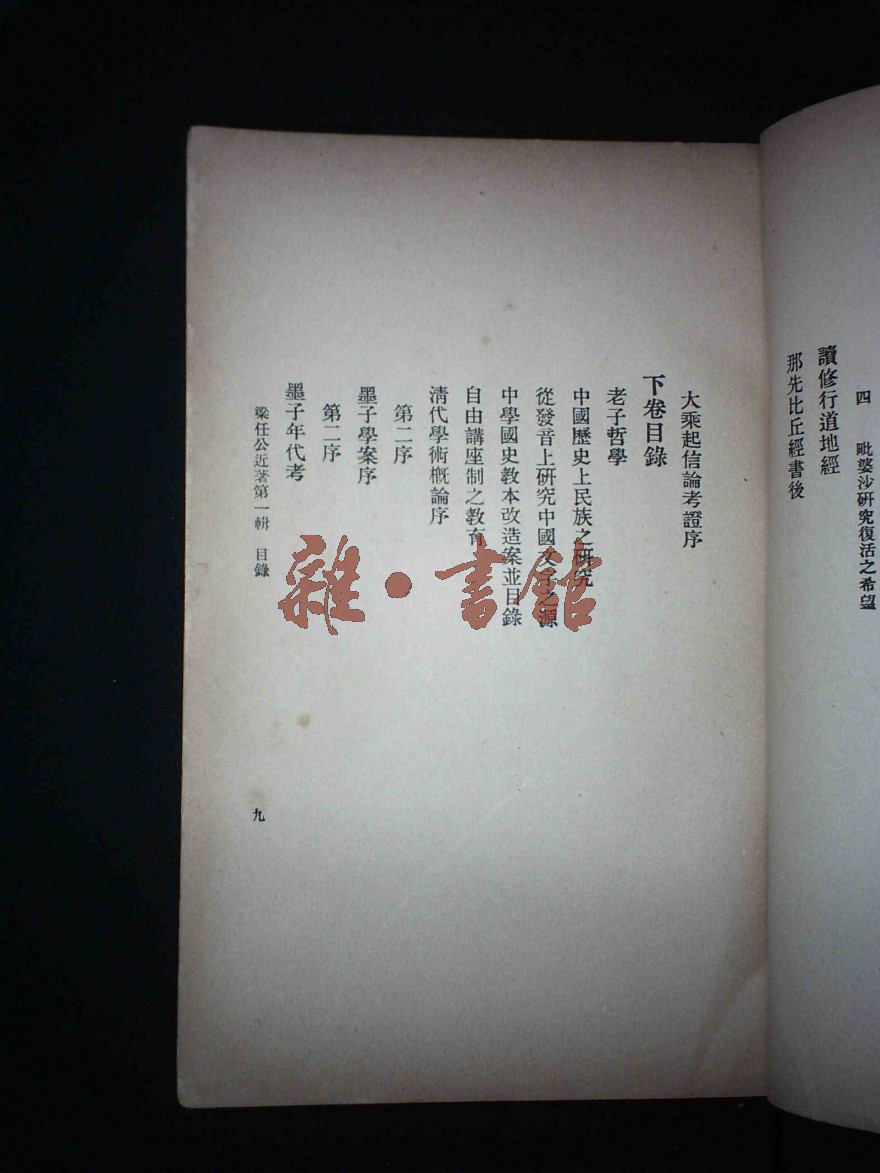 四　毗婆沙研究復活之希望
讀修行道地經
那先比丘經書後
大乘起信論考證序
下卷目錄
老子哲學
中國歷史上民族之研究
從發音上研究中國文字之源
中學國史教本改造案並目錄
自由講座制之教育
清代學術概論序
第二序
墨子學案序
第二序
墨子年代考
梁任公近著第一輯　目錄
九
雜·書館